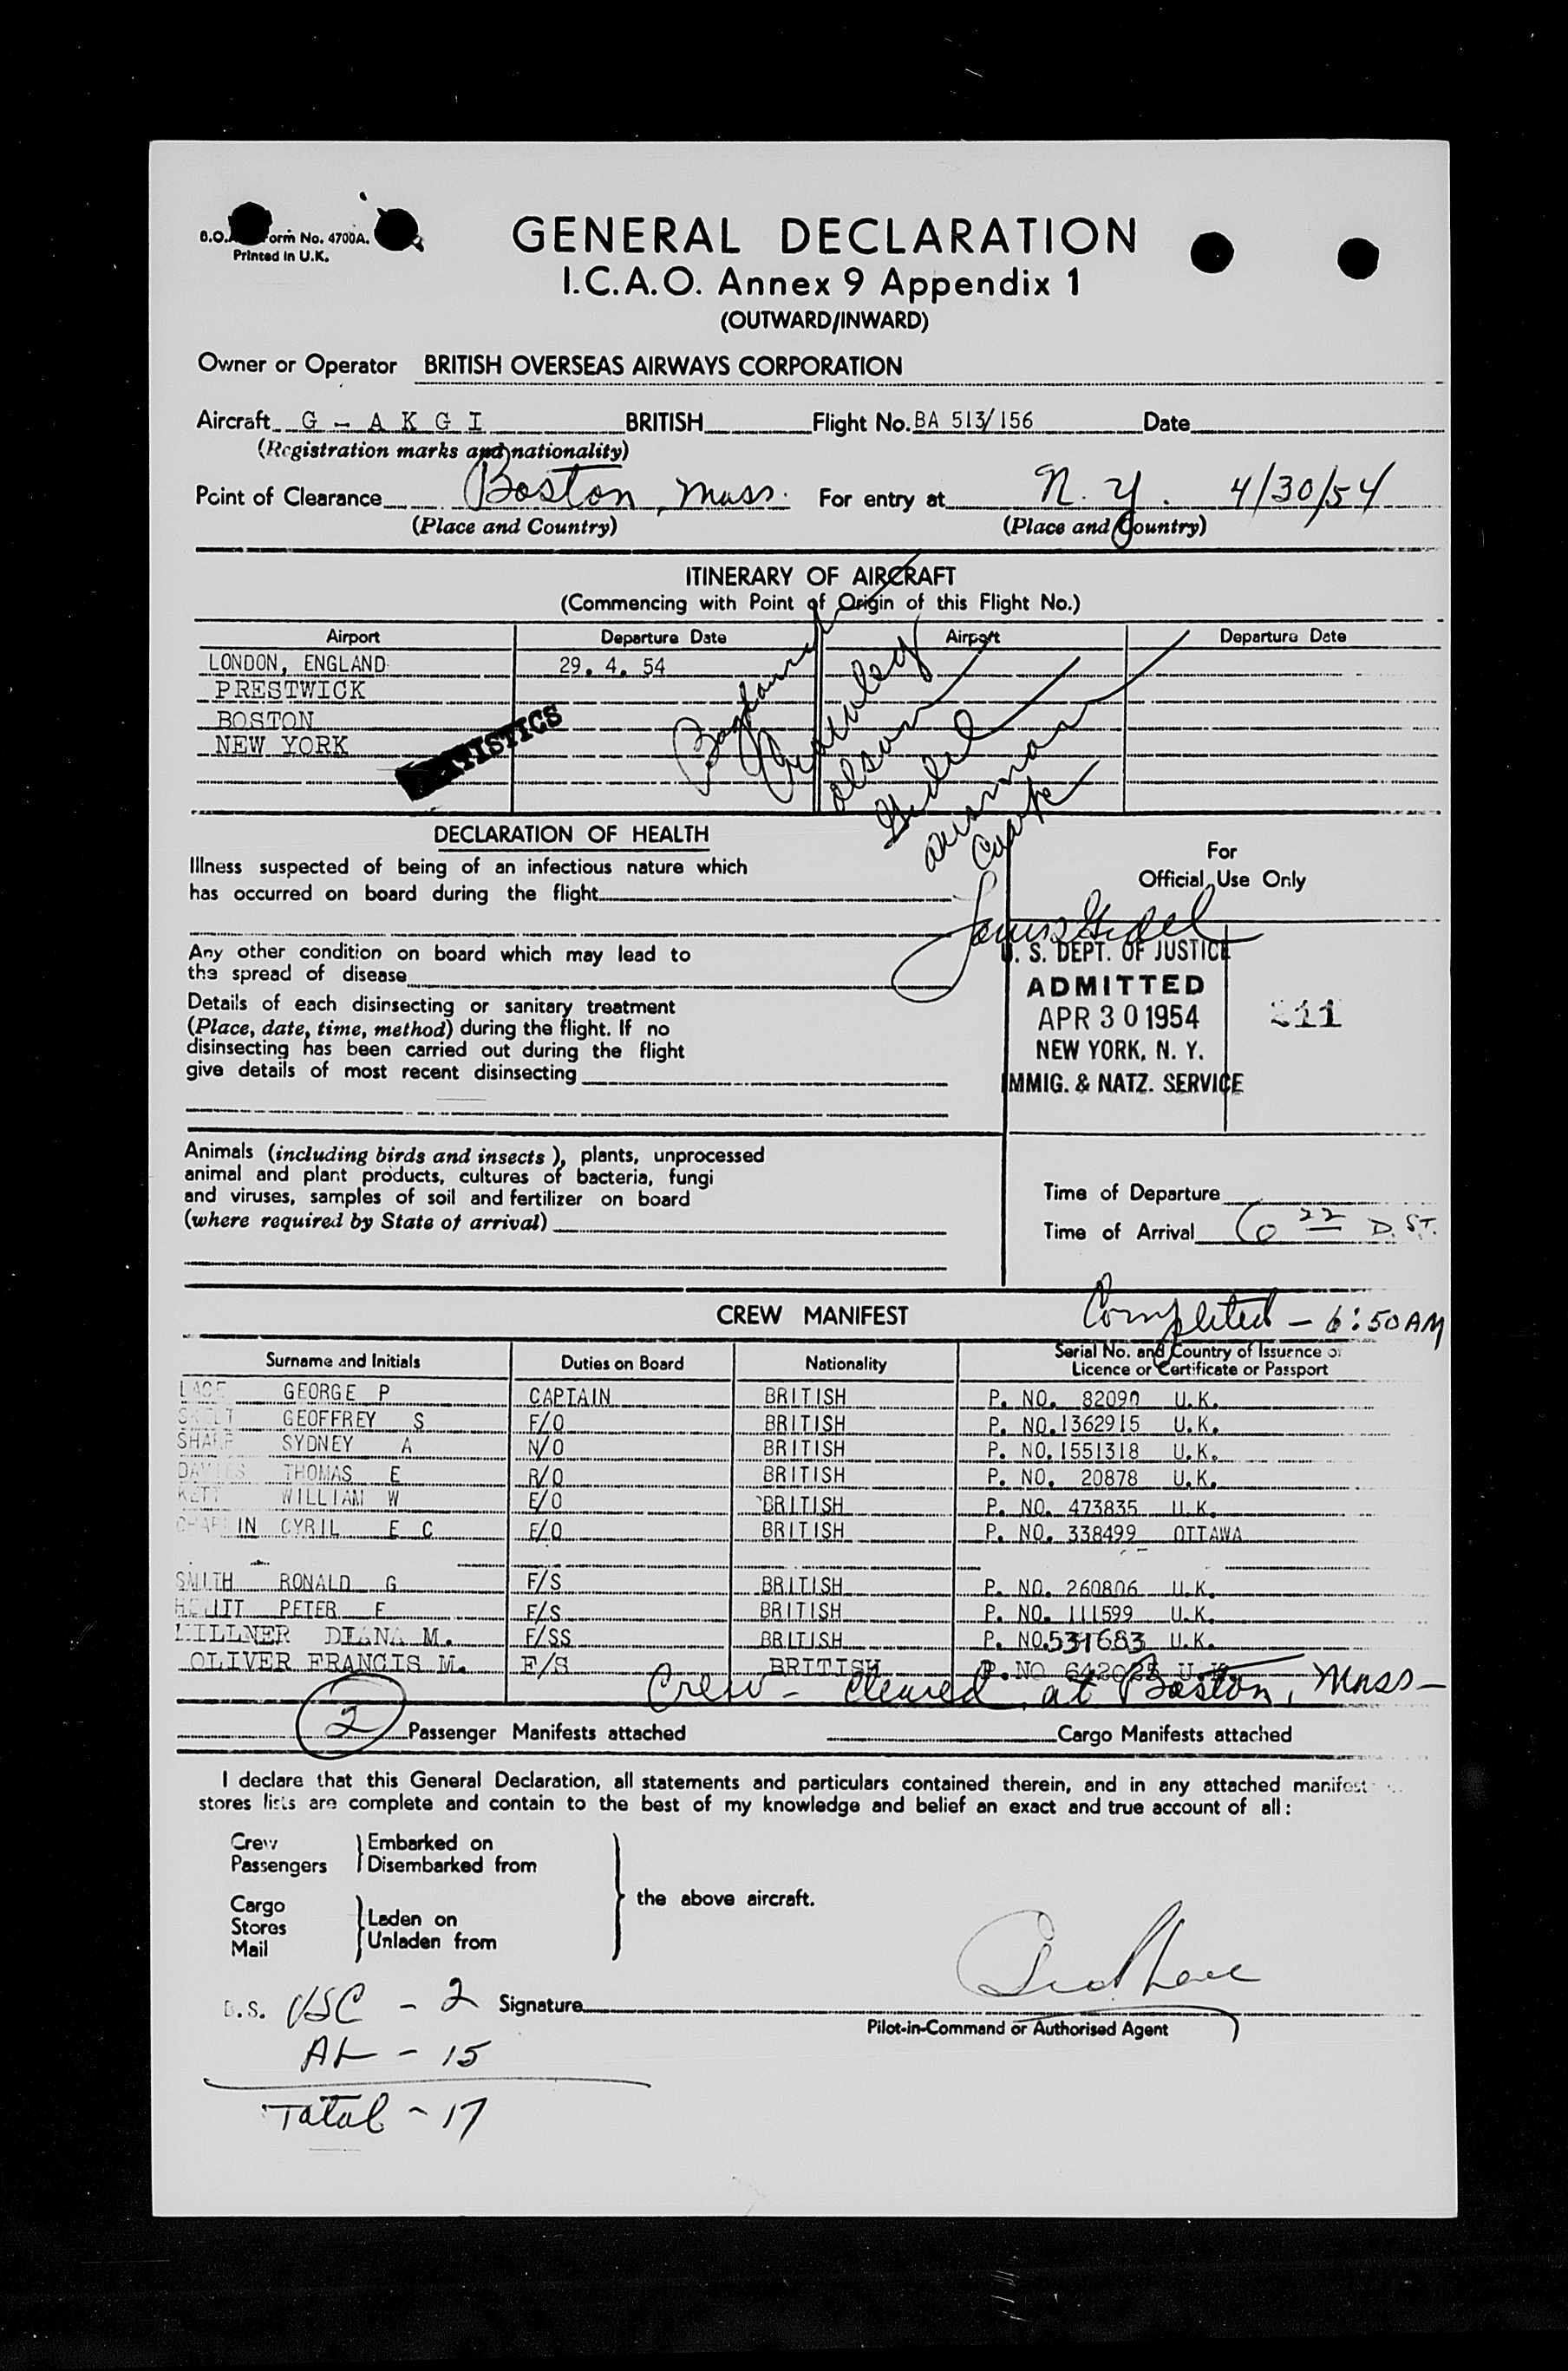 Form No. 4700A.
Printed in U.K.
GENERAL DECLARATION
I.C.A.O. Annex 9 Appendix 1
(OUTWARD/INWARD)
Owner or Operator BRITISH OVERSEAS AIRWAYS CORPORATION
Aircraft G - A K G I BRITISH Flight No. BA 513/156 Date
(Registration marks and nationality)
Point of Clearance Boston, Mass. For entry at N.Y. 4/30/54
(Place and Country) (Place and Country)
ITINERARY OF AIRCRAFT
(Commencing with Point of Origin of this Flight No.)
Airport Departure Date Airport Departure Date
LONDON, ENGLAND 29. 4. 54
PRESTWICK
BOSTON
NEW YORK
DECLARATION OF HEALTH
Illness suspected of being of an infectious nature which
has occurred on board during the flight
Any other condition on board which may lead to
the spread of disease
Details of each disinsecting or sanitary treatment
(Place, date, time, method) during the flight. If no
disinsecting has been carried out during the flight
give details of most recent disinsecting
For
Official Use Only
U. S. DEPT. OF JUSTICE
ADMITTED
APR 30 1954
NEW YORK, N. Y.
IMMIG. & NATZ. SERVICE
211
Animals (including birds and insects), plants, unprocessed
animal and plant products, cultures of bacteria, fungi
and viruses, samples of soil and fertilizer on board
(where required by State of arrival)
Time of Departure
Time of Arrival 6 22 D.ST.
CREW MANIFEST Completed - 6:50 AM
Surname and Initials Duties on Board Nationality Serial No. and Country of Issuance of
Licence or Certificate or Passport
LACE GEORGE P CAPTAIN BRITISH P. NO. 82090 U.K.
GEOFFREY S F/O BRITISH P. NO. 1362915 U.K.
SHARP SYDNEY A N/O BRITISH P. NO. 1551318 U.K.
DAVIES THOMAS E R/O BRITISH P. NO. 20878 U.K.
KETT WILLIAM W E/O BRITISH P. NO. 473835 U.K.
CHAPLIN CYRIL E C E/O BRITISH P. NO. 338499 OTTAWA
SMITH RONALD G F/S BRITISH P. NO. 260806 U.K.
HEWITT PETER F F/S BRITISH P. NO. 111599 U.K.
MILLNER DIANA M. F/SS BRITISH P. NO. 531683 U.K.
OLIVER FRANCIS M. F/S BRITISH P. NO 642025 U.K.
Crew - cleared at Boston, Mass -
2 Passenger Manifests attached Cargo Manifests attached
I declare that this General Declaration, all statements and particulars contained therein, and in any attached manifest
stores lists are complete and contain to the best of my knowledge and belief an exact and true account of all:
Crew Embarked on
Passengers Disembarked from
the above aircraft.
Cargo Laden on
Stores Unladen from
Mail
USC - 2 Signature
Pilot-in-Command or Authorised Agent
AL - 15
Total - 17